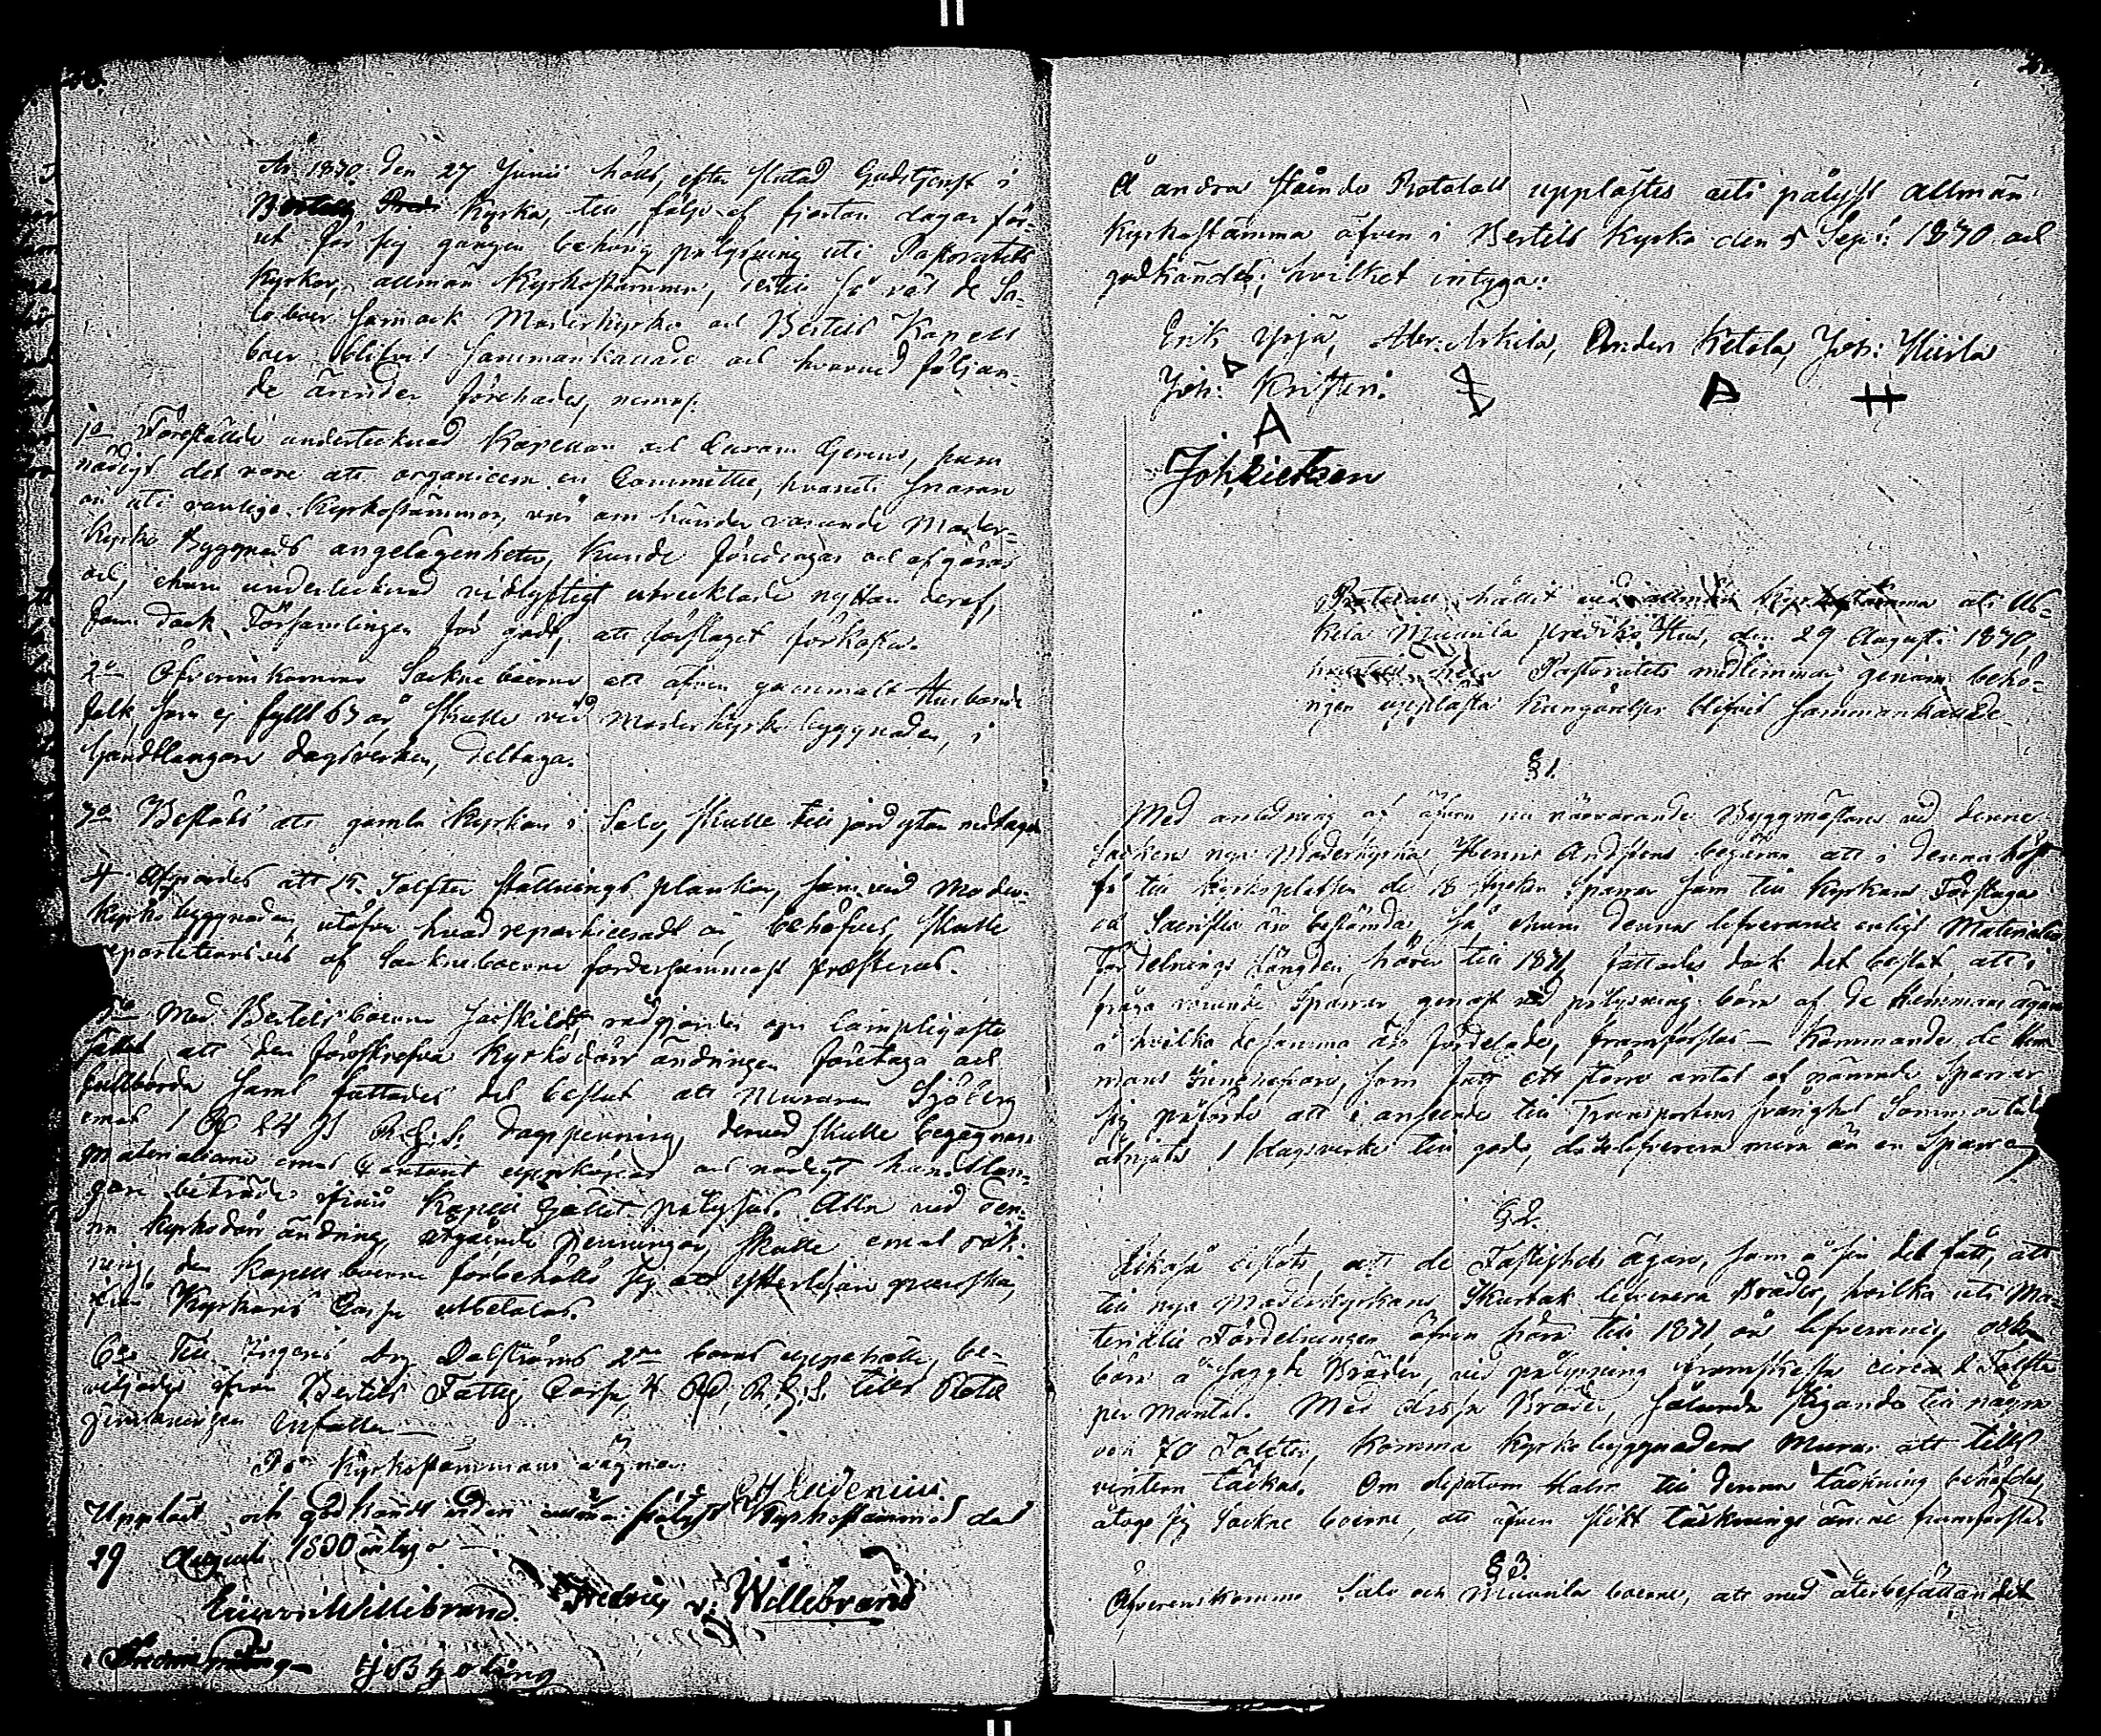 År 1830 den 27 Junii hölls, efter slutad Gudstjenst i
Bertils Kyrka, till följe af fjorton dagar för-
ut för sig gången behörig pålysning uti Pastoratets
Kyrkor, allmän Kyrkostämma, dertill så väl de Sa-
lo boer som ock Moderkyrko och Bertils Kapell
boer blifvit sammankallade och hvarvid följan-
de ärender förehades, nemol:
1o Föreställde undertecknad Kapellan och Curam Gerens, huru
nödigt det vore att organicera en Committée, hvaruti snarare
än uti vanliga Kyrkostämmor, vid om händer varande Moder-
Kyrko Byggnads angelägenheter, kunde föredragas och afgöras
och, ehuru undertecknad vidlyftigt utvecklade nyttan deraf,
fann dock Församlingen för godt, att förslaget förkasta.
2o Öfverenskommo Sockneboerne att äfven gammalt Husbonde
folk, som ej fyllt 63 år skulle vid Moderkyrko byggnaden, i
handtlangare dagsverken, deltaga.
3o Beslöts att gamla Kyrkan i Salo, skulle till jordytan nedtagas
4 Afgjordes att 15 Tolfter ställnings plankor, som vid Moder-
kyrko byggnaden, utöfver hvad reparticeradt är, behöfves, skulle
repartitionsvis af Sockneboerne fordersammast præsteras.
5o Med Bertilsboerne särskildt rådgjordes om lämpligaste
sättet att den föreskrefna Kyrkodörr ändringen företaga och
fullborda samt fattades det beslut att Muraren Sjöberg
emot 1 Rd 24 s R.G.S. dagspenning, dervid skulle begagnas,
Materialierne emot Contant uppköpas och nödigt handtlan-
gare biträde ifrån Kapell Gället pålysas. Alla vid den-
na Kyrkodörr ändring, utgående penningar, skulle emot räk-
ning, den Kapellboerne förbehöllo sig att efterlefva granska,
ifrån Kyrkans Cassa utbetalas.
6o Till Ingeri Arg Dalströms 2ne barns uppehälle, be-
viljades ifrån Bertils Fattig Cassa, 4 Rd, R.G.S. tills Rote
indelningen infaller
På Kyrkostämmans vägnar
Uppläst och godkändt vid en allmän pålyst Kyrkostämma det
29 Augusti 1830 intyga
Fredric v: Willebrand
Å andra stående Protocoll upplästes uti pålyst allmän
Kyrkostämma äfven i Bertils Kyrka den 5 Sept: 1830 och
godkändes; hvilket intyga:
Erik Yrjä, Abr: Arkila, Anders Ketola, Joh: Huila
Joh: Kristeri
A
Protocoll hållet vid allmän Kyrkostämma uti Us-
kela Muurila prediko Hus, den 29 Augusti 1830,
hvartill hela Pastoratets medlemmar genom behö-
rigen upplästa Kungörelser blifvit sammankallade
§ 1.
Med anledning af äfven nu närvarande Byggmästare vid denne
Socken nya Moderkyrka Henric Andsténs begäran att i denna höst
få till Kyrkoplatsen de 18 stycken Sparrar som till Kyrkans Förstuga
och Sacristia äro bestämde, så ehuru denne leverance enligt Materialie
Fördelnings Längden hörer till 1831, fattades dock det beslut, att i
fråga varande Sparrar genast vid pålysning böra af de Hemmans ägare
å hvilka desamma äro fördelade, framforslas — Kommande de Hem-
mans Innehafvare, som fått ett större antal af nämnde Sparrar
sig påförde att i anseende till Transportens svårighet Sommartid
åtnjuta 1 dagsverke till godo, då de leverera mera än en Sparre
§ 2.
Likaså beslöts, att de Fastighets ägare, som å sin del fått, att
till nya Moderkyrkans Skurtak leverera Bräder, hvilka uti Ma-
terialie Fördelningen äfven höra till 1831 års leverering ock
böra å sagde Bräder, vid pålysning framskaffa circa 2 Tolfter
per Mantal. Med dessa Bräder, sålunda stigande till några
och 70 Tolfter, komma Kyrkobyggnadens Murar att till
vintern täckas. Om dessutom Halm till denna täckning behöfdes,
åtogo sig Sockne boerne, att äfven slikt täcknings ämne framforsla
§ 3.
Öfverenskommo Salo och Muurila boerne, att med återbesättandet